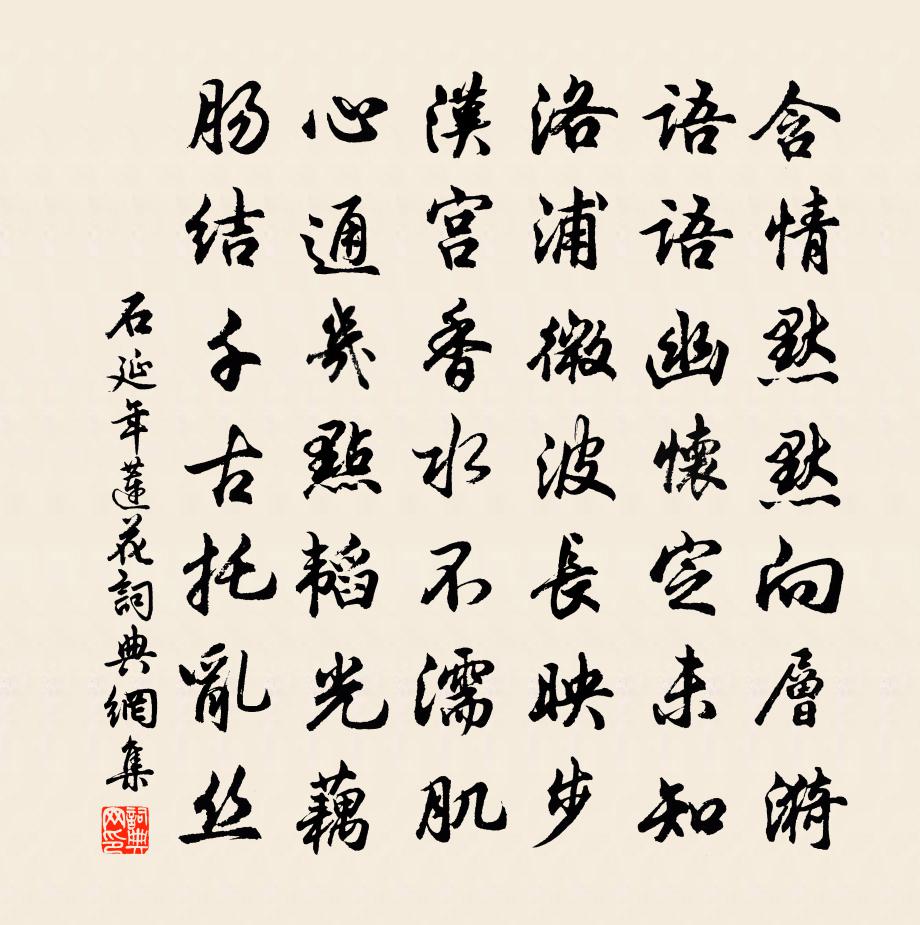 含情默默向層漪
語語幽懷定未知
洛浦微波長映步
漢宮香水不濡肌
心通幾點韜光藕
腸结千古托亂丝
石延年蓮花詞典網集
詞典网印